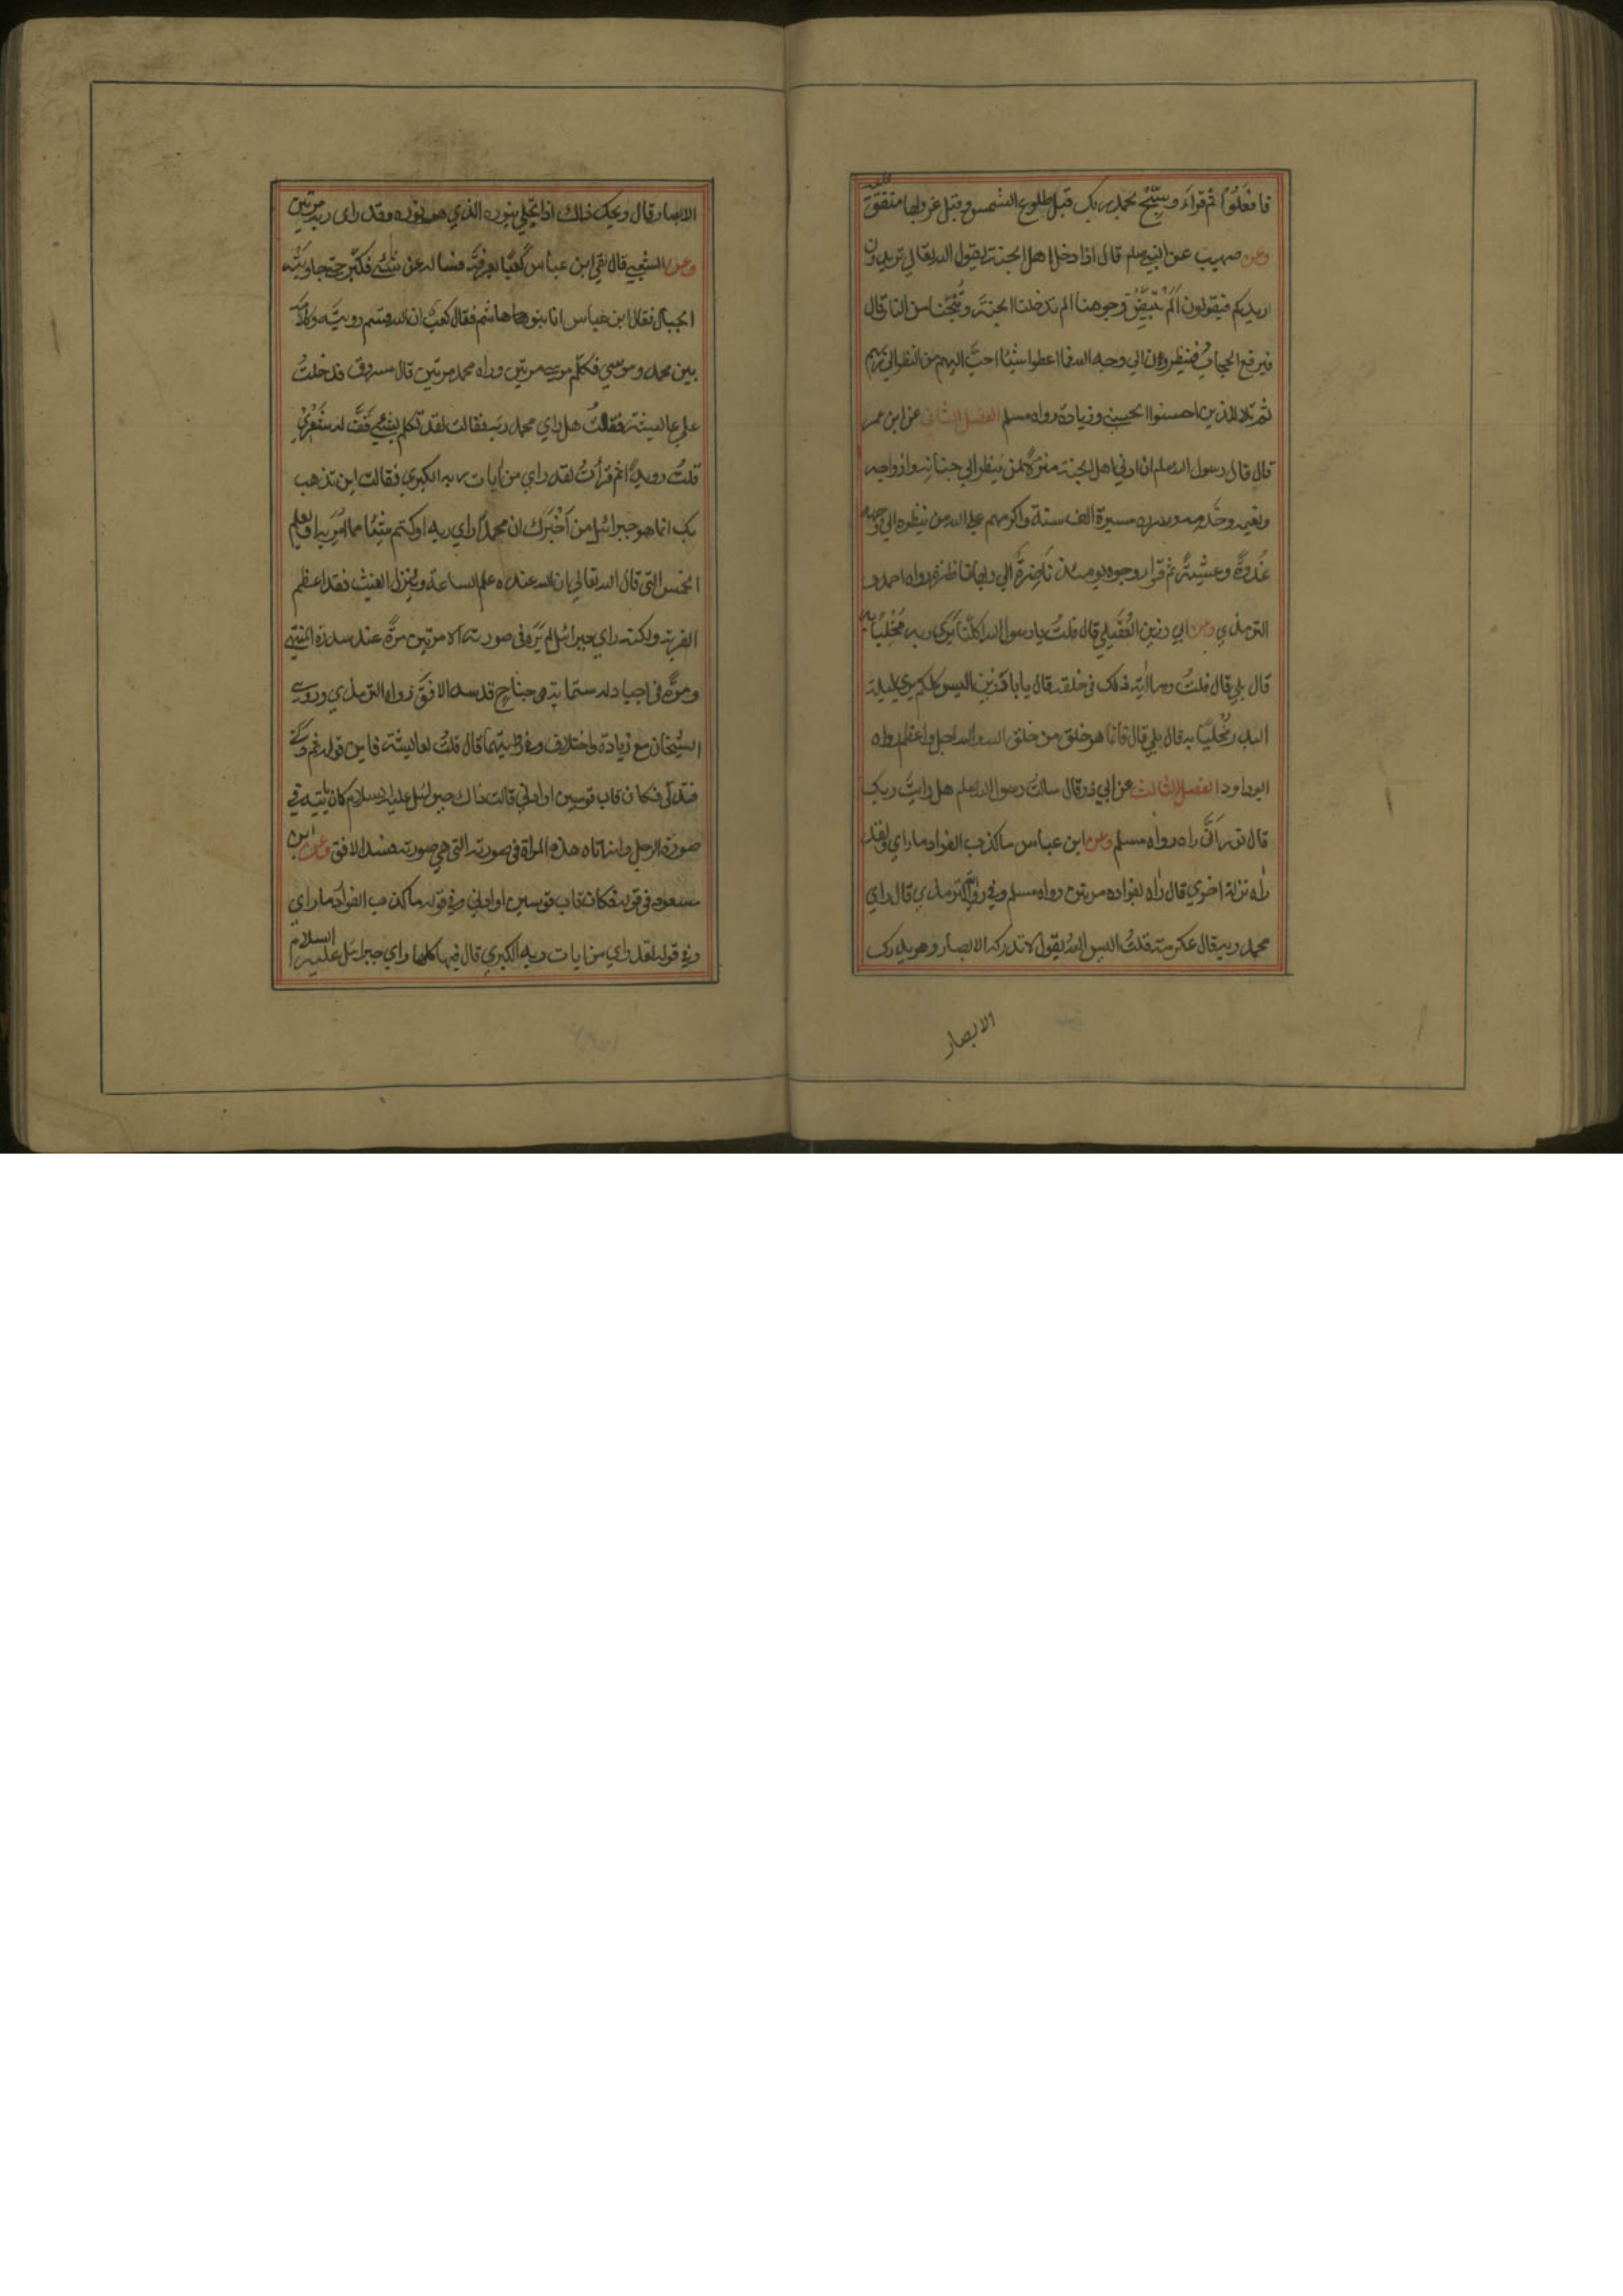 فافعلوا ثم قراء وسبّح بحمد ربك قبل طلوع الشمس وقبل غروبها متفق عليه
وعن صهيب عن النبي صلعم قال اذا دخل اهل الجنة الجنة يقول الله تعالي تريدون
ازيدكم فيقولون الم تبيّض وجوهنا الم تدخلنا الجنة وتنجّنا من النار قال
فيرفع الحجاب فينظرون الي وجه الله فما اعطوا شيئا احبّ اليهم من النظر الي ربهم
ثم تلا للذين احسنوا الحسني وزيادة رواه مسلم الفصل الثاني عن ابن عمر
قال قال رسول الله صلعم ان ادني اهل الجنة منزلة لمن ينظر الي جنانه وازواجه
ونعيمه وخدمه وسرره مسيرة الف سنة واكرمهم علي الله من ينظر الي وجهه
غدوة وعشية ثم قرا وجوه يومئذ ناضرة الي ربها ناظرة رواه احمد و
الترمذي وعن ابي رزين العقيلي قال قلت يا رسول الله اكلنا يري ربه مخليا به
قال بلي قال قلت وما اية ذلك في خلقه قال يا با رزين اليس كلكم يري ليلة
البدر مخليا به قال بلي قال فانما هو خلق من خلق الله والله اجل واعظم رواه
ابوداود الفصل الثالث عن ابي ذر قال سالت رسول الله صلعم هل رايت ربك
قال نور انّي راه رواه مسلم وعن ابن عباس ما كذب الفواد ما راي ولقد
راه نزلة اخري قال راه بفواده مرتين رواه مسلم وفي رواية الترمذي قال راي
محمد ربه قال عكرمة قلت اليس الله يقول لا تدركه الابصار وهو يدرك
الابصار
الابصار قال ويحك ذلك اذا تجلي بنوره الذي هو نوره وقد راى ربه مرتين
وعن الشعبي قال لقي ابن عباس كعبا بعرفة فساله عن شئ فكبّر حتي جاوبته
الجبال فقال ابن عباس انا بنو هاشم فقال كعب ان الله قسم رويته وكلامه
بين محمد وموسي فكلم موسي مرتين وراه محمد مرتين قال مسروق فدخلت
علي عايشة فقلت هل راي محمد ربه فقالت لقد تكلم بشئ قفّ له شعري
قلت رويدا ثم قرات لقد راي من ايات ربه الكبري فقالت اين تذهب
بك انما هو جبرائيل من اخبرك ان محمدا راي ربه او كتم شيئا مما امر به او يعلم
الخمس التي قال الله تعالي ان الله عنده علم الساعة وينزل الغيث فقد اعظم
الفرية ولكنه راي جبرائيل لم يره في صورته الا مرتين مرة عند سدرة المنتهي
ومرة في اجياد له ستماية جناح قد سد الافق رواه الترمذي وروي
الشيخان مع زيادة واختلاف وفي روايتهما قال قلت لعايشة فاين قوله ثم دني
فتدلي فكان قاب قوسين او ادني قالت ذاك جبرئيل عليه السلام كان ياتيه في
صورة الرجل وانه اتاه هذه المراة في صورته التي هي صورته فسد الافق وعن ابن
مسعود في قوله فكان قاب قوسين او ادني وفي قوله ما كذب الفواد ما راي
وفي قوله لقد راي من ايات ربه الكبري قال فيها كلها راي جبرائيل عليه السلام